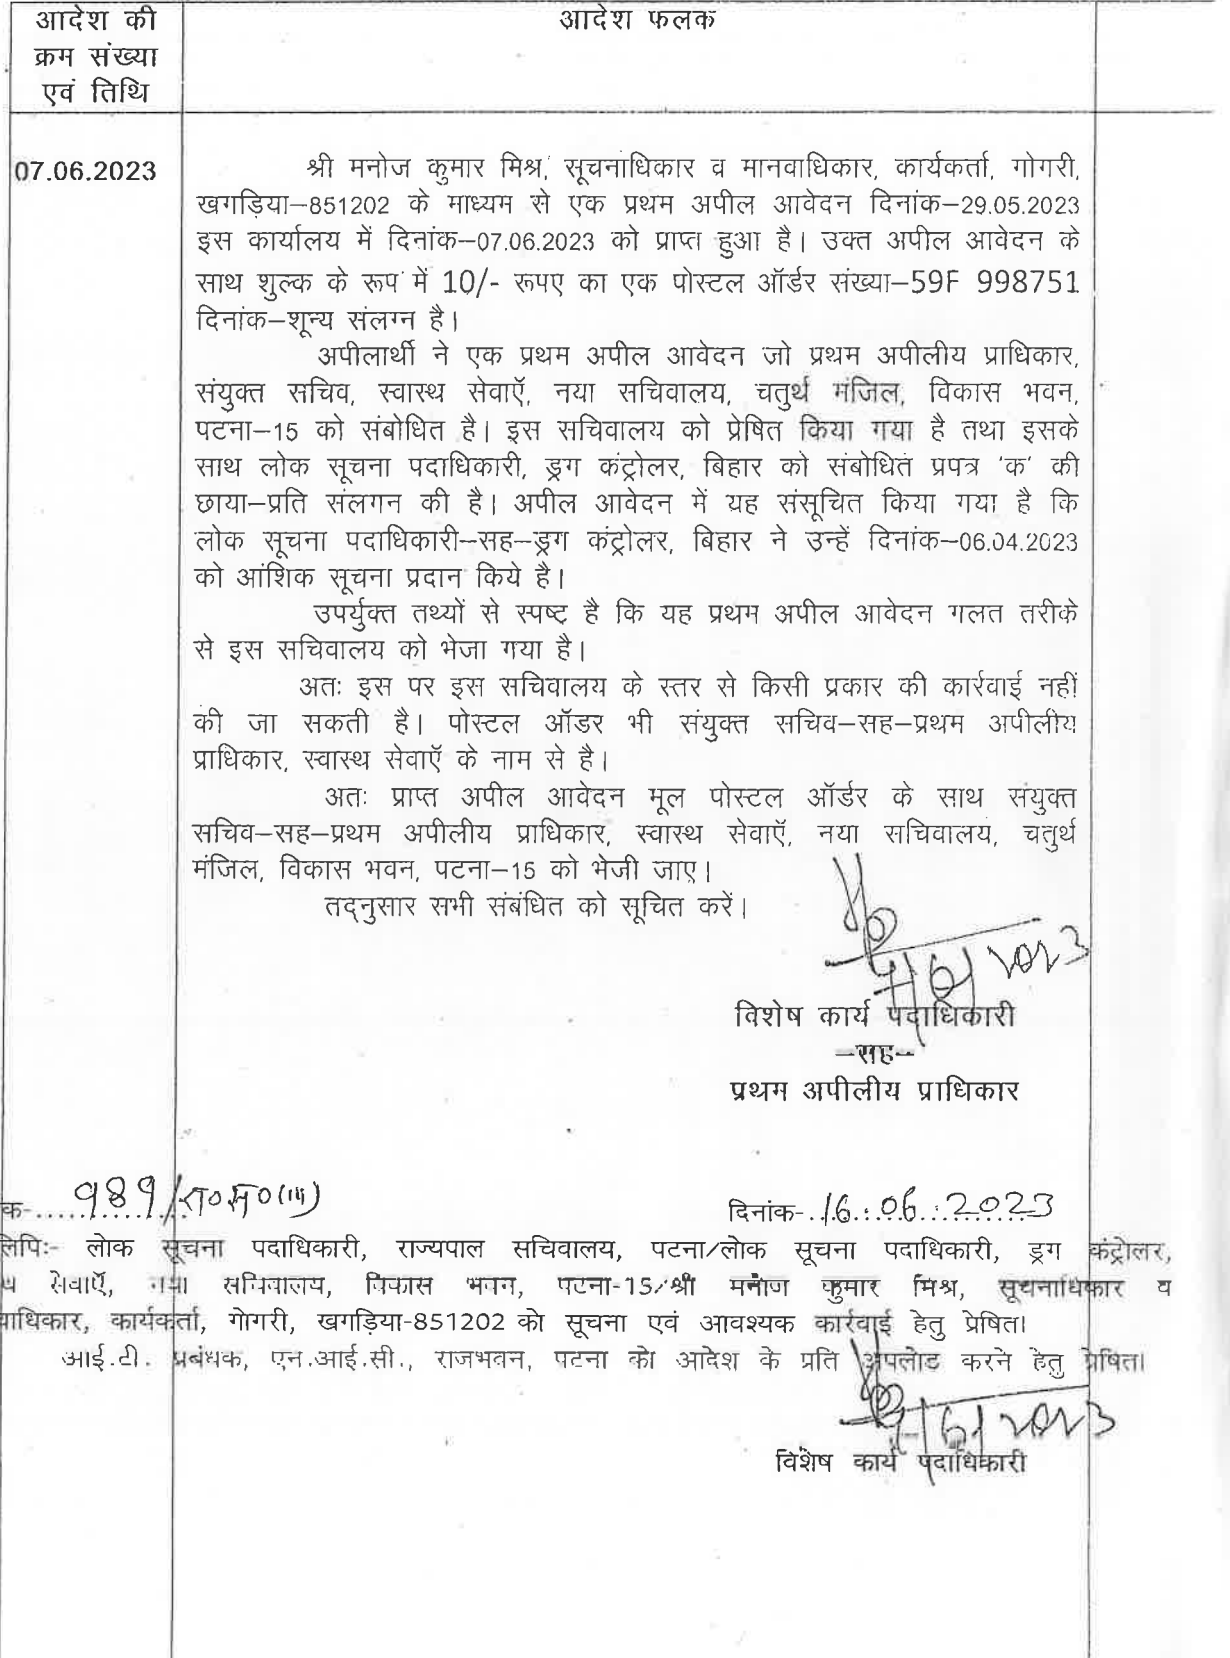 आदेश की
क्रम संख्या
एवं तिथि
आदेश फलक
07.06.2023
श्री मनोज कुमार मिश्र, सूचनाधिकार व मानवाधिकार, कार्यकर्ता, गोगरी,
खगड़िया–851202 के माध्यम से एक प्रथम अपील आवेदन दिनांक–29.05.2023
इस कार्यालय में दिनांक–07.06.2023 को प्राप्त हुआ है। उक्त अपील आवेदन के
साथ शुल्क के रूप में 10/- रूपए का एक पोस्टल ऑर्डर संख्या–59F 998751
दिनांक–शून्य संलग्न है।
अपीलार्थी ने एक प्रथम अपील आवेदन जो प्रथम अपीलीय प्राधिकार,
संयुक्त सचिव, स्वास्थ सेवाऍ, नया सचिवालय, चतुर्थ मंजिल, विकास भवन,
पटना–15 को संबोधित है। इस सचिवालय को प्रेषित किया गया है तथा इसके
साथ लोक सूचना पदाधिकारी, ड्रग कंट्रोलर, बिहार को संबोधित प्रपत्र 'क' की
छाया–प्रति संलगन की है। अपील आवेदन में यह संसूचित किया गया है कि
लोक सूचना पदाधिकारी–सह–ड्रग कंट्रोलर, बिहार ने उन्हें दिनांक–06.04.2023
को आंशिक सूचना प्रदान किये है।
उपर्युक्त तथ्यों से स्पष्ट है कि यह प्रथम अपील आवेदन गलत तरीके
से इस सचिवालय को भेजा गया है।
अतः इस पर इस सचिवालय के स्तर से किसी प्रकार की कार्रवाई नहीं
की जा सकती है। पोस्टल ऑडर भी संयुक्त सचिव–सह–प्रथम अपीलीय
प्राधिकार, स्वास्थ सेवाऍ के नाम से है।
अतः प्राप्त अपील आवेदन मूल पोस्टल ऑर्डर के साथ संयुक्त
सचिव–सह–प्रथम अपीलीय प्राधिकार, स्वास्थ सेवाऍ, नया सचिवालय, चतुर्थ
मंजिल, विकास भवन, पटना–15 को भेजी जाए।
तद्नुसार सभी संबंधित को सूचित करें।
विशेष कार्य पदाधिकारी
–सह–
प्रथम अपीलीय प्राधिकार
क-..989/रा०स०(III) दिनांक-.16.06.2023
लिपिः- लोक सूचना पदाधिकारी, राज्यपाल सचिवालय, पटना/लोक सूचना पदाधिकारी, ड्रग कंट्रोलर,
सेवाऍ, नया सचिवालय, विकास भवन, पटना-15/श्री मनोज कुमार मिश्र, सूचनाधिकार व
ाधिकार, कार्यकर्ता, गोगरी, खगड़िया-851202 को सूचना एवं आवश्यक कार्रवाई हेतु प्रेषित।
आई.टी. प्रबंधक, एन.आई.सी., राजभवन, पटना को आदेश के प्रति अपलोड करने हेतु प्रेषित।
विशेष कार्य पदाधिकारी